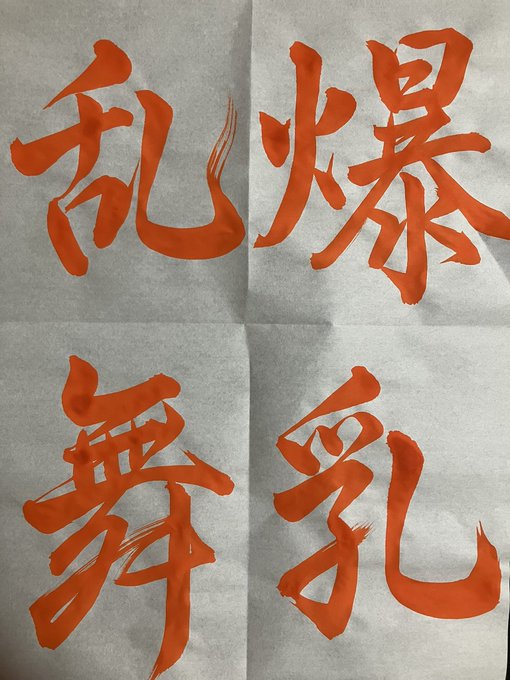 爆乳
乱舞